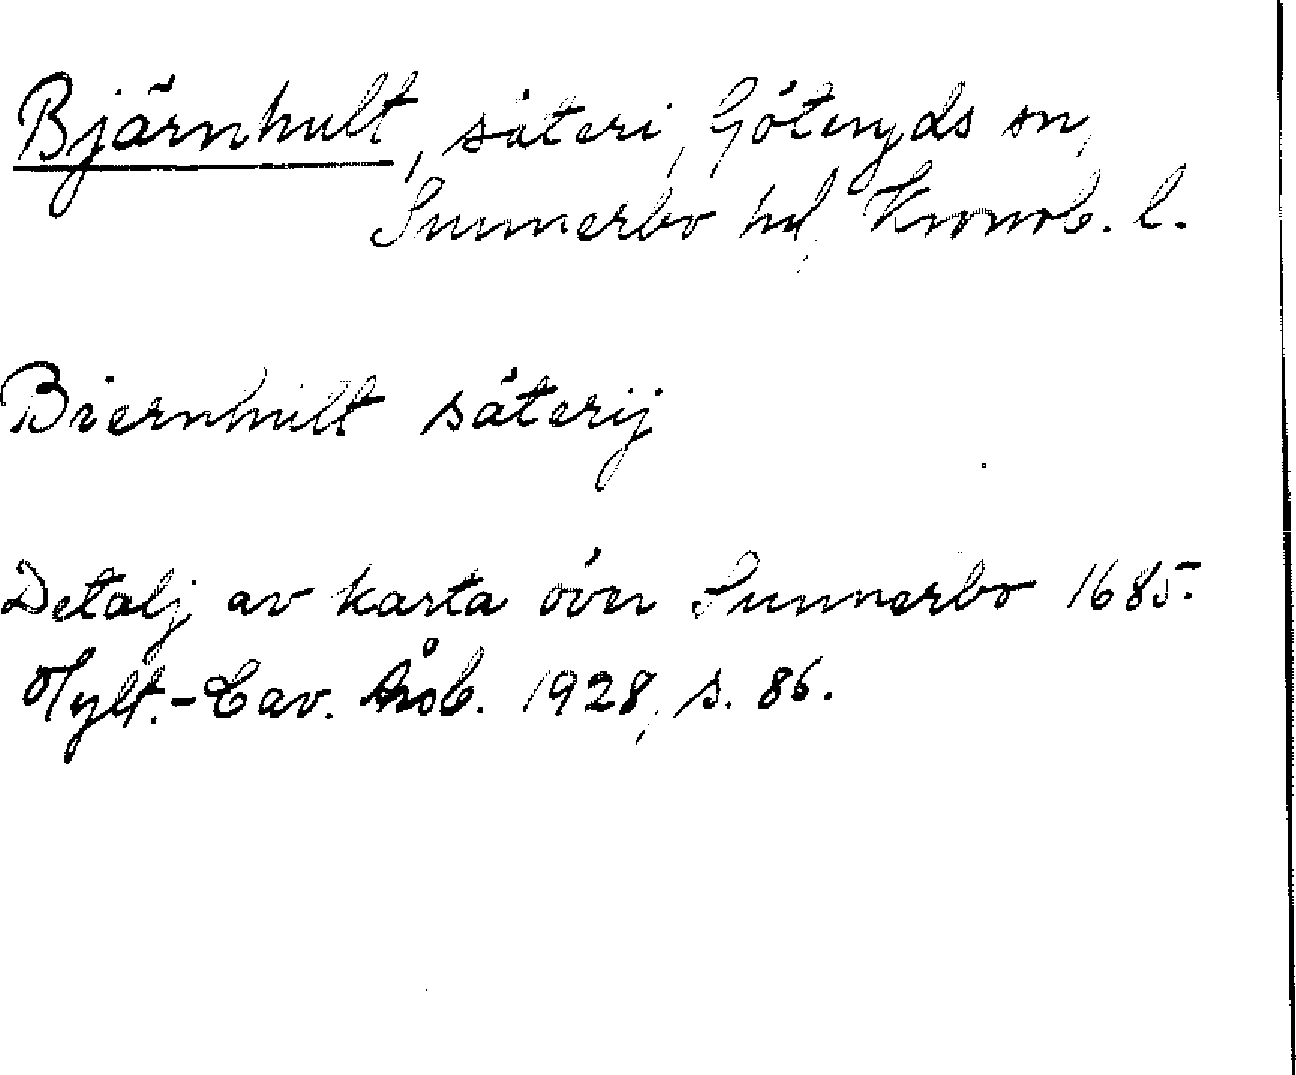 Bjärnhult, säteri, Göteryds sn,
Sunnerbo hd, Kronob. l.
Biernhult säterij
Detalj av karta över Sunnerbo 1685.
Hylt.-Cav. årsb. 1928, s. 86.